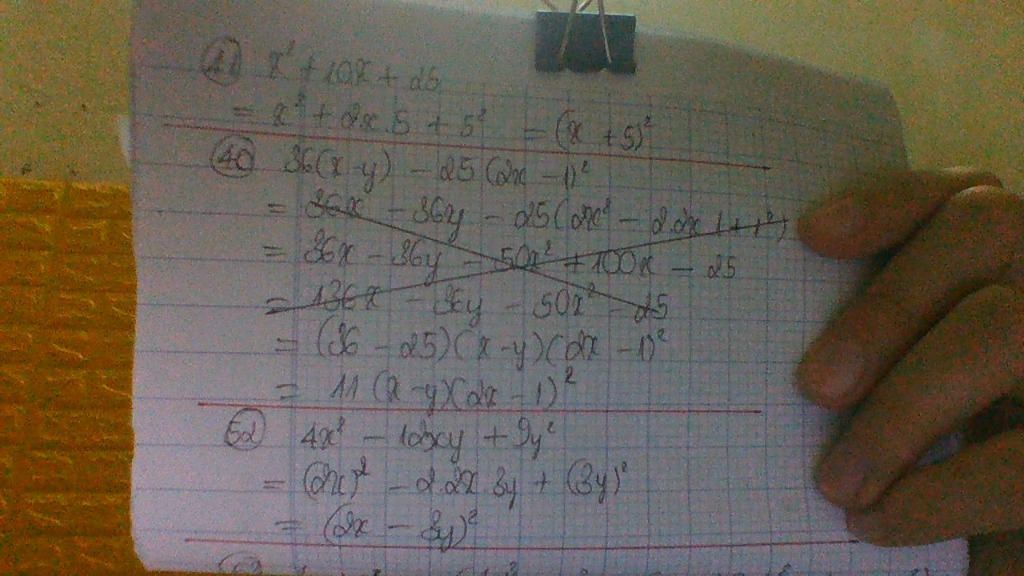 41 x² + 10x + 25
= x² + 2x.5 + 5² = (x + 5)²
40 36(x-y) - 25(2x - 1)²
= 36x - 36y - 25(2x² - 2.2x.1 + 1²)
= 36x - 36y - 50x² + 100x - 25
= 136x - 36y - 50x² - 25
= (36 - 25)(x-y)(2x - 1)²
= 11(x-y)(2x - 1)²
52 4x² - 12xy + 9y²
= (2x)² - 2.2x.3y + (3y)²
= (2x - 3y)²